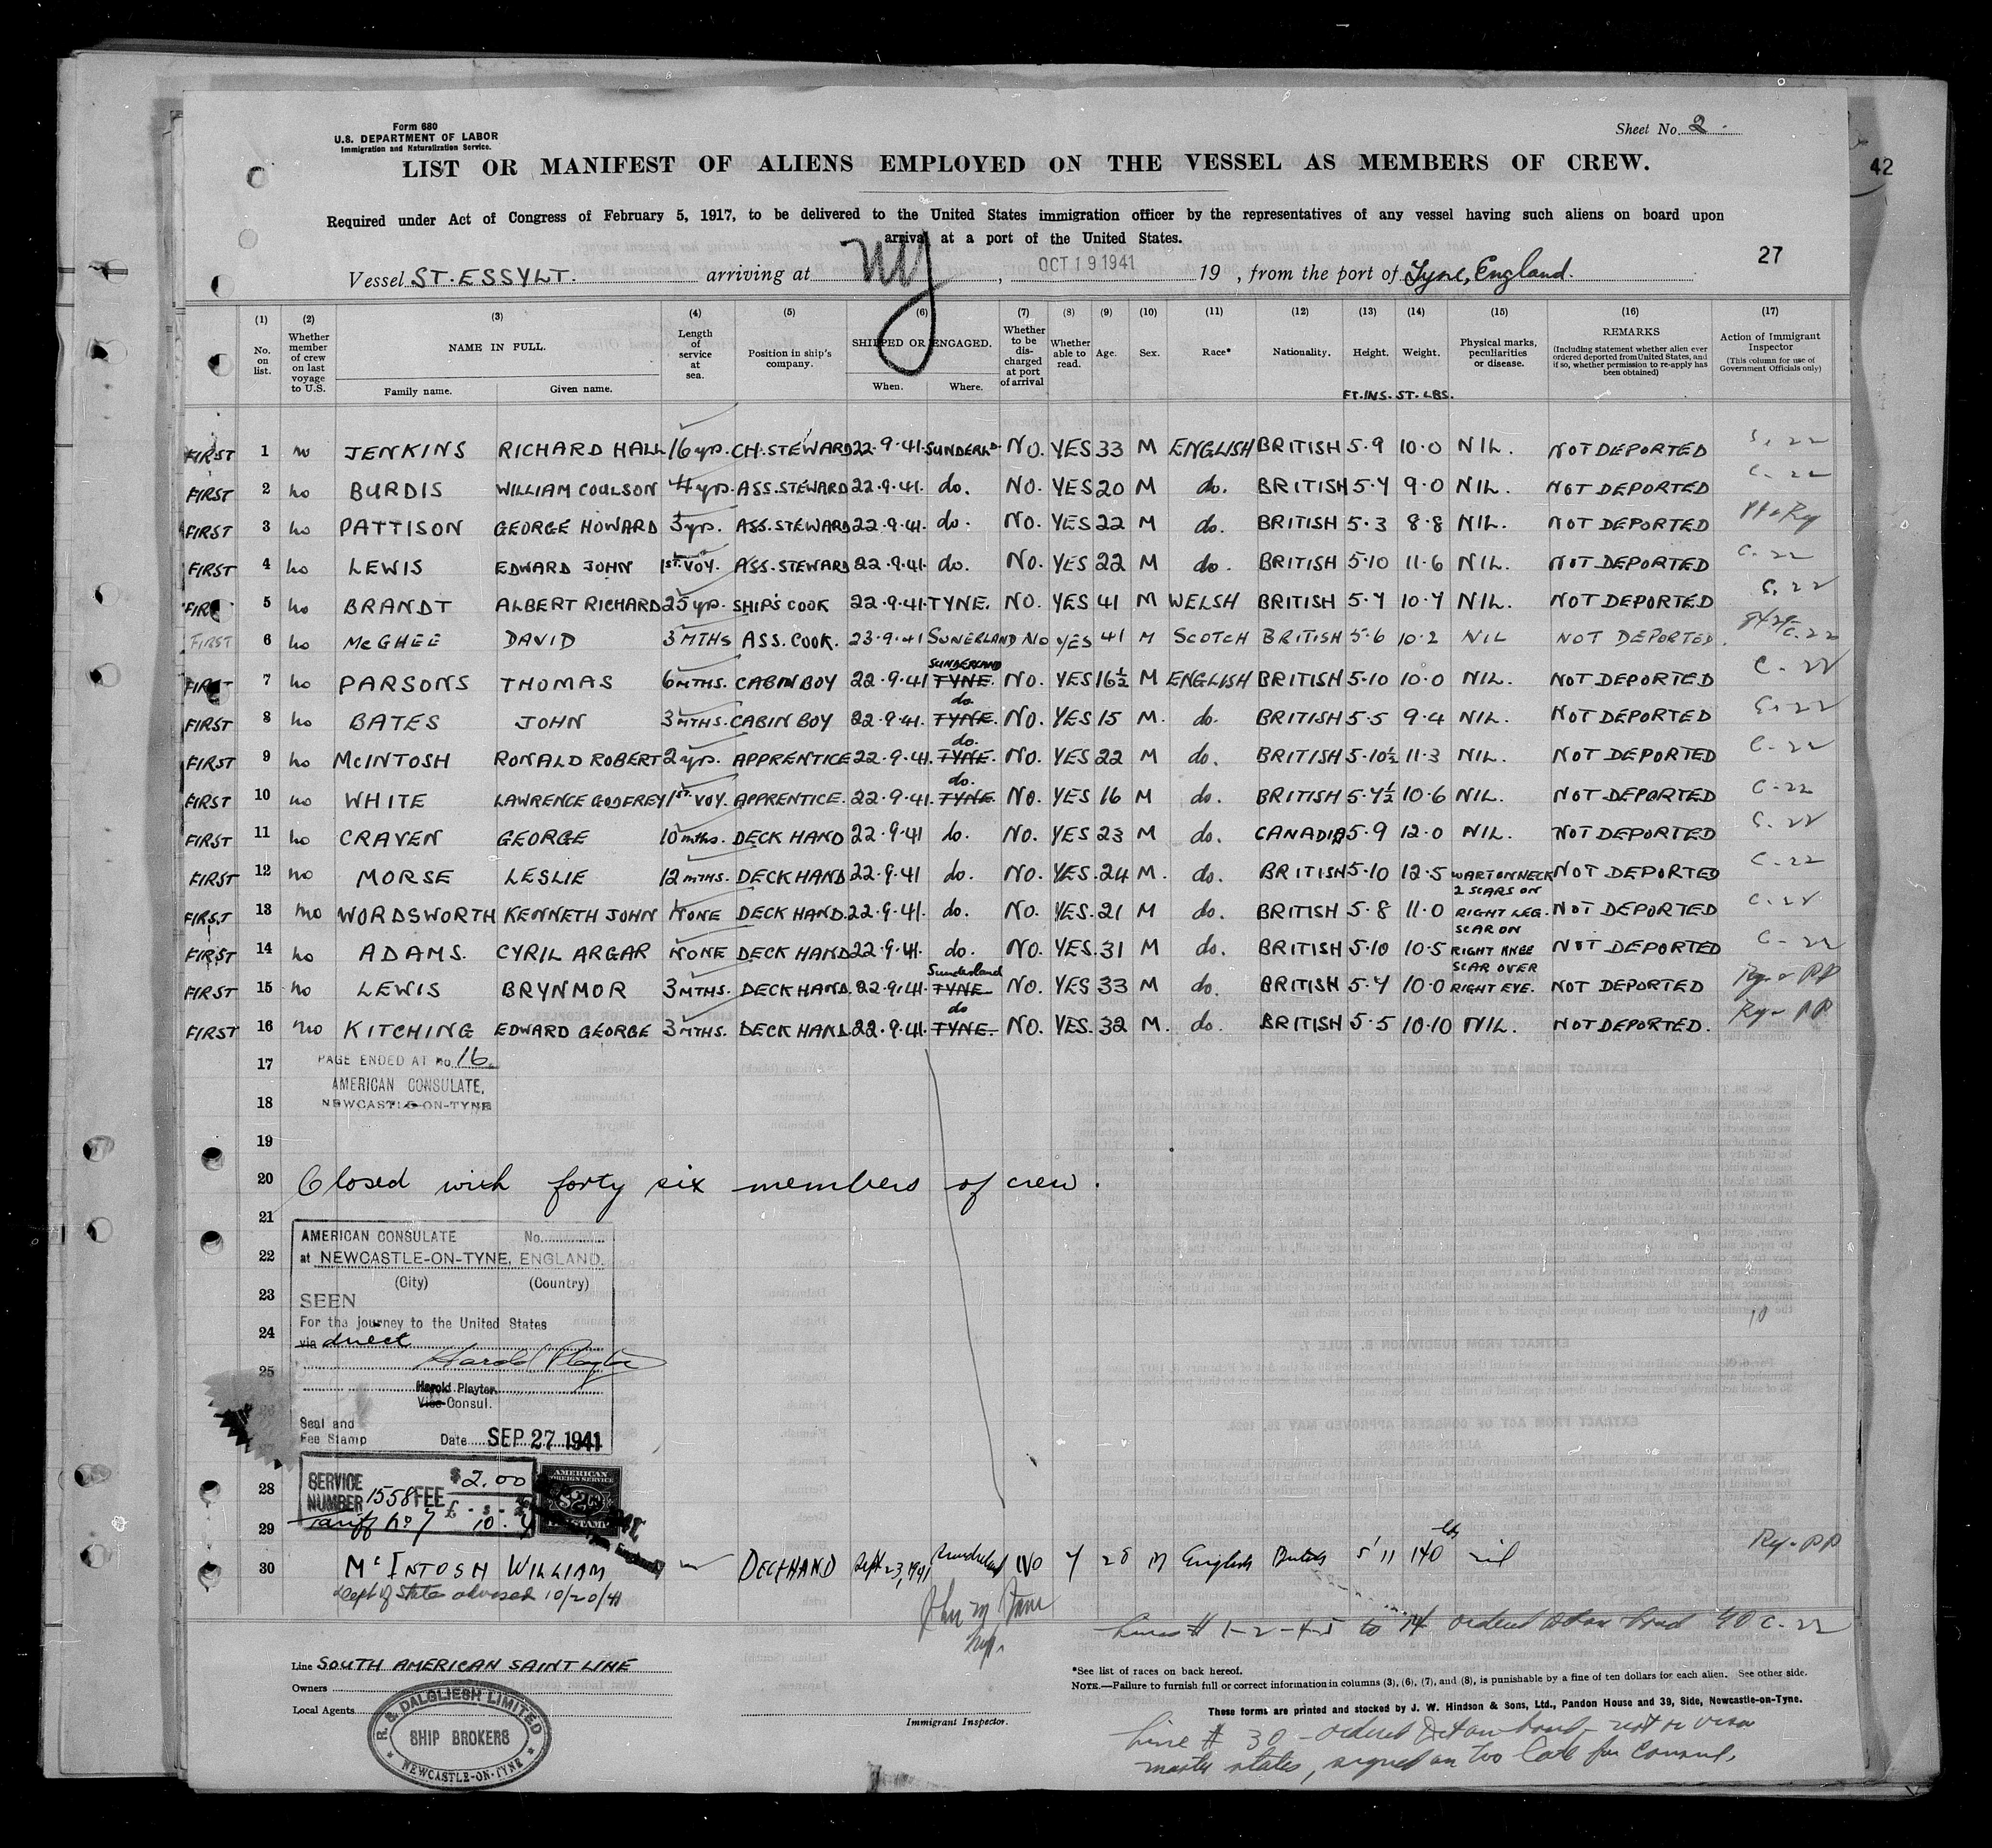 Form 680
U.S. DEPARTMENT OF LABOR
Immigration and Naturalization Service.
Sheet No. 2.
LIST OR MANIFEST OF ALIENS EMPLOYED ON THE VESSEL AS MEMBERS OF CREW.
42
Required under Act of Congress of February 5, 1917, to be delivered to the United States immigration officer by the representatives of any vessel having such aliens on board upon
arrival at a port of the United States.
27
Vessel ST. ESSYLT. arriving at NY, OCT 19 1941 19 , from the port of Tyne, England.
(1) No. on list.
(2) Whether member of crew on last voyage to U.S.
(3) NAME IN FULL. Family name. Given name.
(4) Length of service at sea.
(5) Position in ship's company.
(6) SHIPPED OR ENGAGED. When. Where.
(7) Whether to be discharged at port of arrival
(8) Whether able to read.
(9) Age.
(10) Sex.
(11) Race*
(12) Nationality.
(13) Height.
(14) Weight.
(15) Physical marks, peculiarities or disease.
(16) REMARKS (Including statement whether alien ever ordered deported from United States, and if so, whether permission to re-apply has been obtained)
(17) Action of Immigrant Inspector (This column for use of Government Officials only)
FT. INS. ST. LBS.
FIRST 1 no JENKINS RICHARD HALL 16 yrs. CH. STEWARD 22.9.41. SUNDERLD. NO. YES 33 M ENGLISH BRITISH 5.9 10.0 NIL. NOT DEPORTED C. 22
FIRST 2 no BURDIS WILLIAM COULSON 4 yrs. ASS. STEWARD 22.9.41. do. NO. YES 20 M do. BRITISH 5.4 9.0 NIL. NOT DEPORTED C. 22
FIRST 3 no PATTISON GEORGE HOWARD 3 yrs. ASS. STEWARD 22.9.41. do. NO. YES 22 M do. BRITISH 5.3 8.8 NIL. NOT DEPORTED
FIRST 4 no LEWIS EDWARD JOHN 1st. VOY. ASS. STEWARD 22.9.41. do. NO. YES 22 M do. BRITISH 5.10 11.6 NIL. NOT DEPORTED C. 22
FIRST 5 no BRANDT ALBERT RICHARD 25 yrs. SHIP'S COOK 22.9.41. TYNE. NO. YES 41 M WELSH BRITISH 5.4 10.4 NIL. NOT DEPORTED C. 22
FIRST 6 no McGHEE DAVID 3 MTHS ASS. COOK. 23.9.41 SUNERLAND NO YES 41 M SCOTCH BRITISH 5.6 10.2 NIL NOT DEPORTED. C. 22
FIRST 7 no PARSONS THOMAS 6 MTHS. CABIN BOY 22.9.41 TYNE. SUNDERLAND NO. YES 16½ M ENGLISH BRITISH 5.10 10.0 NIL. NOT DEPORTED C - 22
FIRST 8 no BATES JOHN 3 MTHS. CABIN BOY 22.9.41. TYNE. do. NO. YES 15 M. do. BRITISH 5.5 9.4 NIL. NOT DEPORTED C. 22
FIRST 9 no McINTOSH RONALD ROBERT 2 yrs. APPRENTICE 22.9.41. TYNE. do. NO. YES 22 M do. BRITISH 5.10½ 11.3 NIL. NOT DEPORTED C - 22
FIRST 10 no WHITE LAWRENCE GODFREY 1st. VOY. APPRENTICE. 22.9.41. TYNE. do. NO. YES 16 M do. BRITISH 5.4½ 10.6 NIL. NOT DEPORTED C - 22
FIRST 11 no CRAVEN GEORGE 10 mths. DECK HAND 22.9.41 do. NO. YES 23 M do. CANADIA 5.9 12.0 NIL. NOT DEPORTED C. 22
FIRST 12 no MORSE LESLIE 12 MTHS. DECK HAND. 22.9.41 do. NO. YES. 24 M. do. BRITISH 5.10 12.5 WART ON NECK NOT DEPORTED C - 22
FIRST 13 no WORDSWORTH KENNETH JOHN NONE DECK HAND. 22.9.41. do. NO. YES. 21 M do. BRITISH 5.8 11.0 2 SCARS ON RIGHT LEG. NOT DEPORTED C - 22
FIRST 14 no ADAMS. CYRIL ARGAR NONE DECK HAND 22.9.41. do. NO. YES. 31 M do. BRITISH 5.10 10.5 SCAR ON RIGHT KNEE NOT DEPORTED C - 22
FIRST 15 no LEWIS BRYNMOR 3 MTHS. DECK HAND. 22.9.41. TYNE Sunderland NO. YES 33 M do. BRITISH 5.4 10.0 SCAR OVER RIGHT EYE. NOT DEPORTED Ry - PP
FIRST 16 no KITCHING EDWARD GEORGE 3 MTHS. DECK HAND. 22.9.41. TYNE. do NO. YES. 32 M. do. BRITISH 5.5 10.10 NIL. NOT DEPORTED. Ry - PP
17 PAGE ENDED AT No. 16
AMERICAN CONSULATE,
18 NEWCASTLE-ON-TYNE
19
20 Closed with forty six members of crew.
21
AMERICAN CONSULATE No.
22 at NEWCASTLE-ON-TYNE, ENGLAND.
(City) (Country)
23 SEEN
For the journey to the United States
24 via direct
Harold Playter
25
Harold Playter
Vice Consul.
Seal and
Fee Stamp Date SEP 27 1941
10
28 SERVICE NUMBER 1558 FEE $2.00
£ - s - d
Tariff No 7 10. 4
AMERICAN FOREIGN SERVICE $2 FEE STAMP
29
30 McINTOSH WILLIAM DECKHAND Sept 23, 1941 Sunderland NO Y 28 M English British 5'11 140 lbs nil Ry - PP
Dept of State advised 10/20/41
Lines # 1-2-4-5 to 14 ordered detain board C-22
Line SOUTH AMERICAN SAINT LINE
Owners
Local Agents
R. S. DALGLIESH LIMITED
SHIP BROKERS
NEWCASTLE-ON-TYNE
Immigrant Inspector.
*See list of races on back hereof.
NOTE.—Failure to furnish full or correct information in columns (3), (6), (7), and (8), is punishable by a fine of ten dollars for each alien. See other side.
These forms are printed and stocked by J. W. Hindson & Sons, Ltd., Pandon House and 39, Side, Newcastle-on-Tyne.
Line # 30 - ordered Det on board - not on visa
master states, signed on too late for Consul.